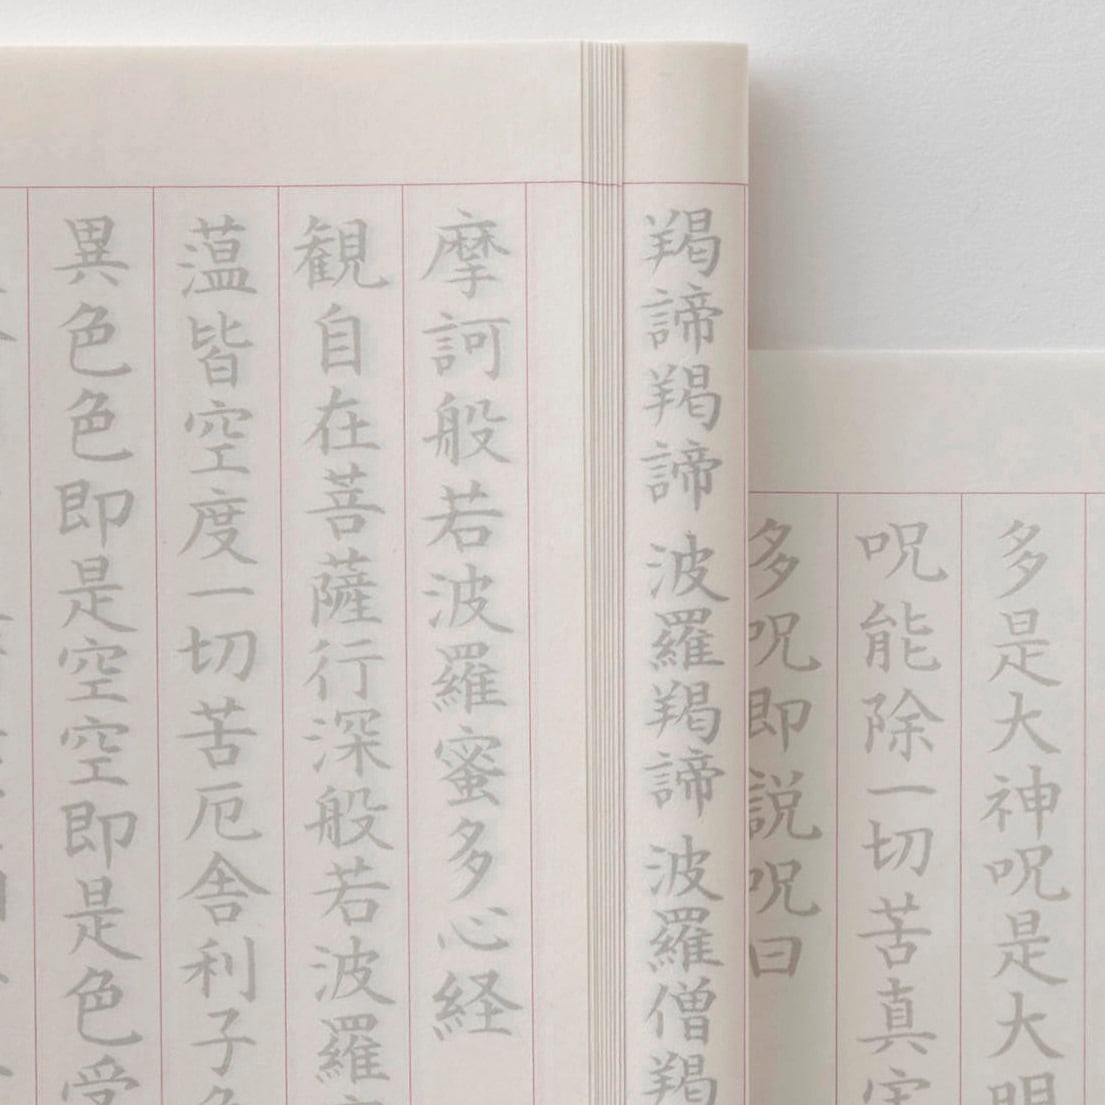 多是大神呪是大明
呪能除一切苦真実
多呪即説呪曰
羯諦羯諦 波羅羯諦 波羅僧羯
摩訶般若波羅蜜多心経
観自在菩薩行深般若波羅
薀皆空度一切苦厄舎利子
異色色即是空空即是色受